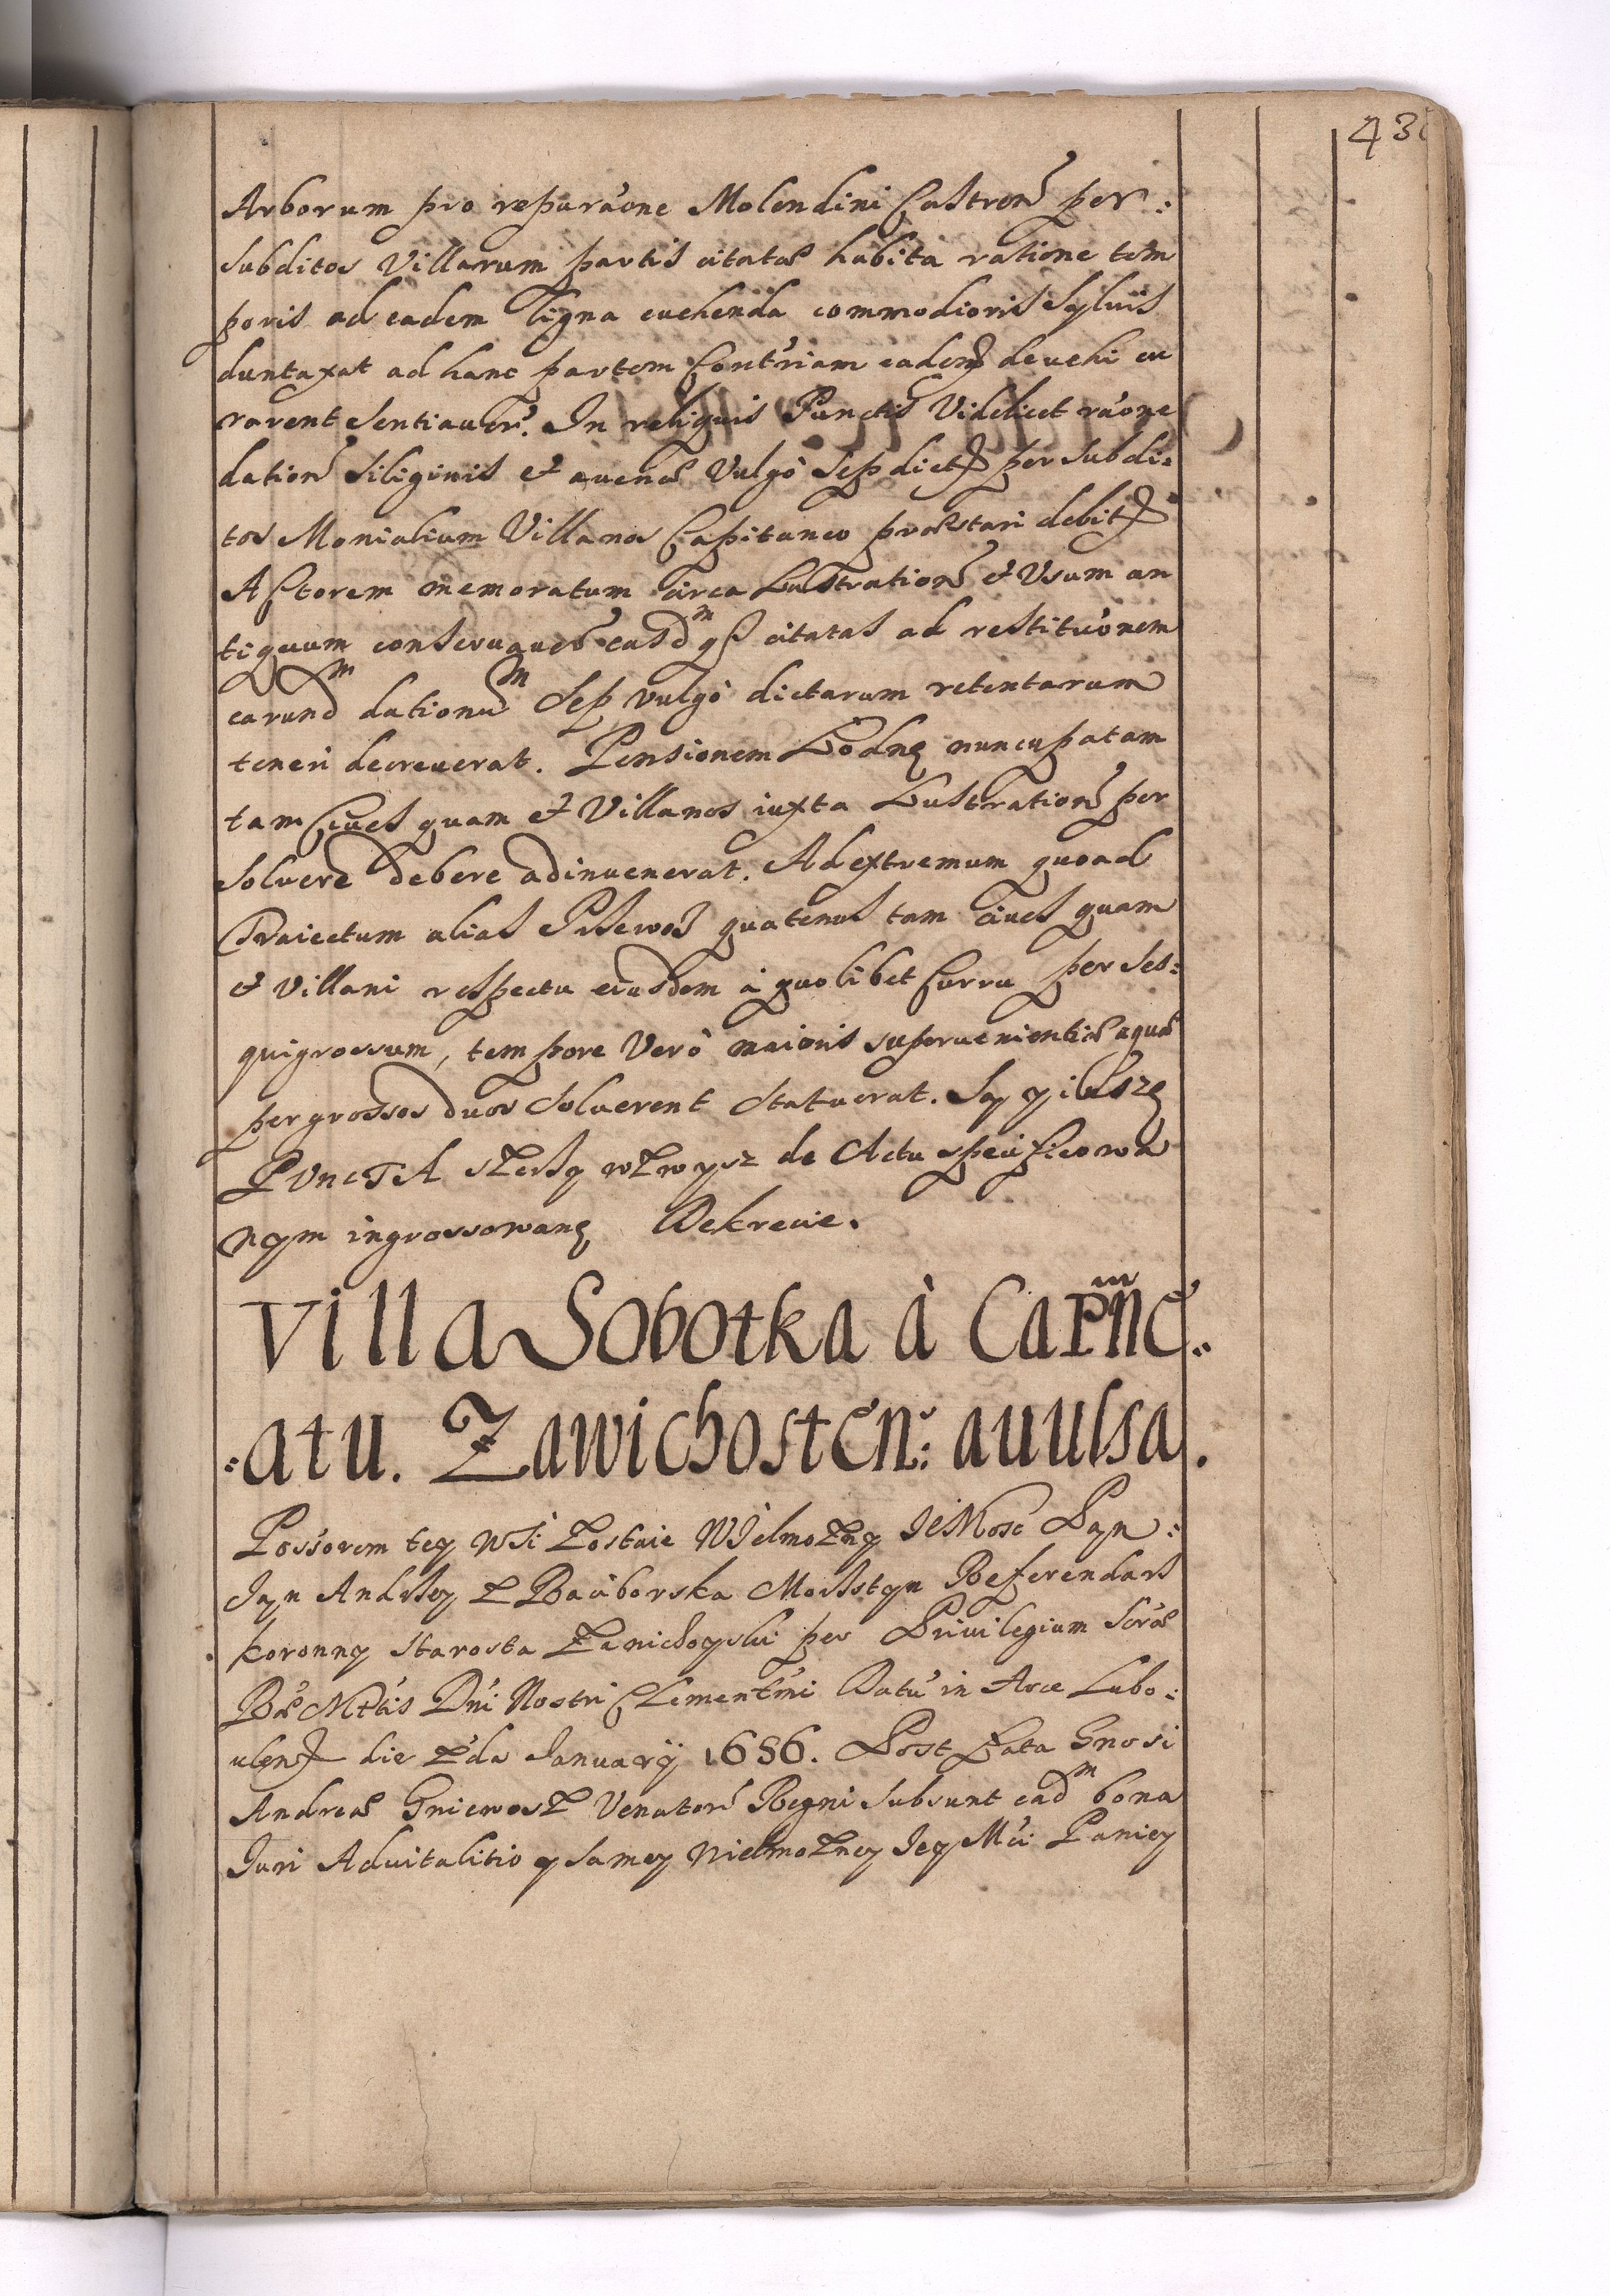 430
Arborum pro reparaóne Molendini Castren per:
subditos Villarum partis citatæ habita ratione tem
poris ad eadem ligna euehenda commodioris Syluis
duntaxat ad hanc partem Contrriam eadem deuehi cu
rarent sentiauer. In reliquis Punctis Videlicet raóne
dation siliginis et auenæ Vulgò Sep dict per subdi:
tos Monialium Villanos Capitaneo præstari debit
Actorem memoratum circa Lustration et Vsum an
tiquum conseruauer easdm qs citatas ad restituónem
earundm dationum Sep vulgò dictarum retentarum
teneri decreuerat. Pensionem Łodne nuncupatam
tam Ciues quam et Villanos iuxta Lustration per
soluere debere adinuenerat. Ad extremum quoad
Traiectum alias Przewoz quatenus tam ciues quam
et Villani respectu eiusdem à quolibet Curru per ses:
quigrossum, tempore Verò maioris superuenientis aquæ
per grossos duos soluerent statuerat. Są y insze
PuncTA szerzy wzwysz de Actu specificowa
nym ingrossowane Dekrecie.
Villa Sobotka à Capnē:
:atu. Zawichosten: auulsa.
Possorem tey wsi zostaie Wielmozny JeMosc Pan:
Jan Andrzey z Raciborska Morsztyn Referendarz
koronny Starosta Zawichoyski per Priuilegium Scræ
Ræ Mttis Dni Nostri Clementmi Datū in Arce Iabo:
uień die 2da January 1686. Post Fata Gnosi
Andreæ Gniewosz Venator Regni subsunt eadm bona
Juri Aduitalitio y samey Wielmozney Jey Mci Paniey